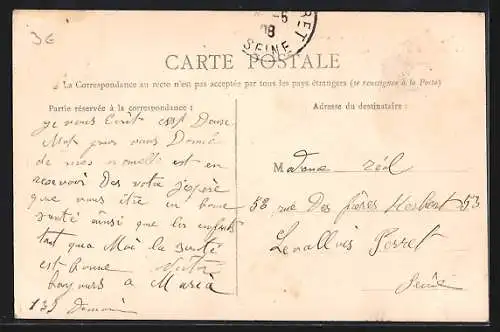 3€
-5
08
RET
SEINE
CARTE POSTALE
La Correspondance au recto n'est pas acceptée par tous les pays étrangers (se renseigner à la Poste)
Partie réservée à la correspondance :
Adresse du destinataire :
je vous Ecrit ses Deuse
Mot pour vous Donné
de mes nouvelle est en
recevoir Des votre j'espère
que vous itre en bonne
santé ainsi que les enfants
tant qua Moi la santé
est bonne
toujours a Maria
135
Madame réal
58 rue Des frères Herbert 53
Levallois Perret
Seine